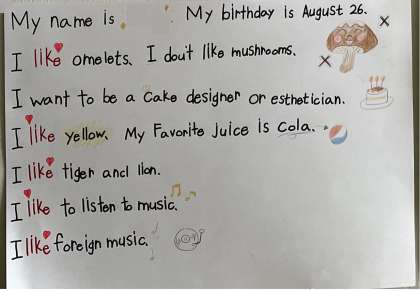 My name is My birthday is August 26.
I like omelets. I don't like mushrooms.
I want to be a Cake designer or esthetician.
I like yellow. My Favorite juice is Cola.
I like tiger and lion.
I like to listen to music.
I like foreign music.